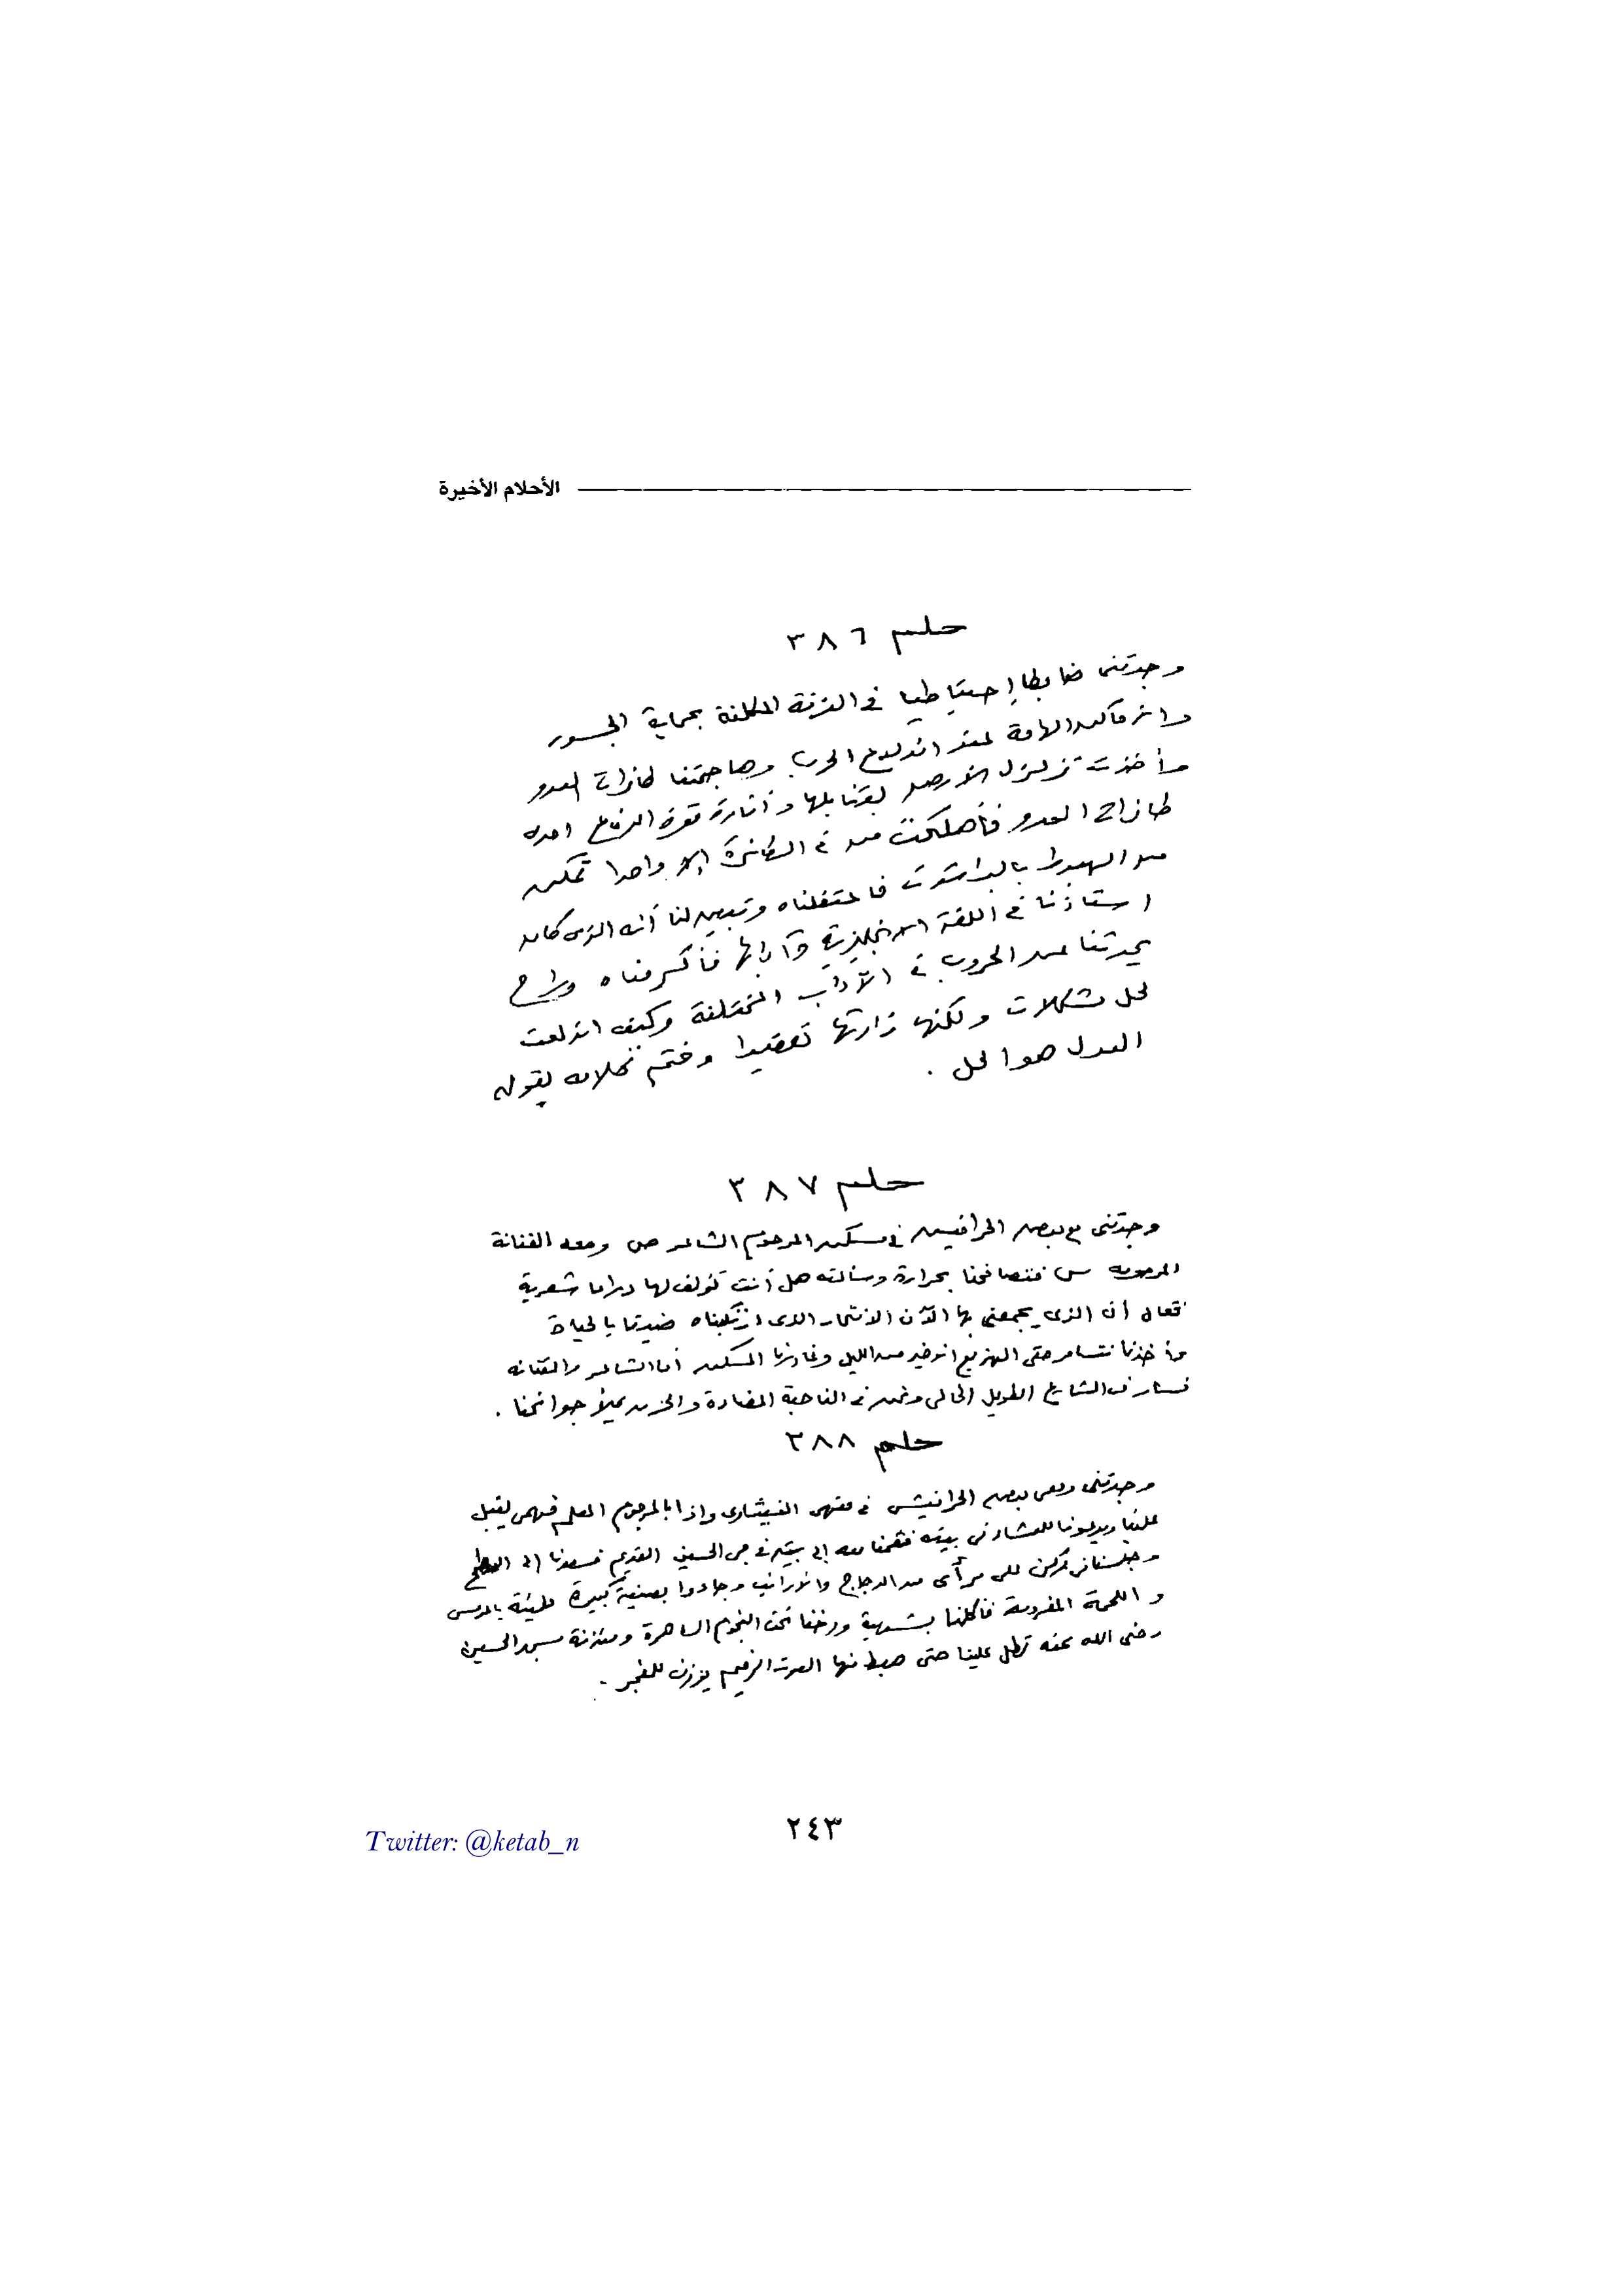 الأحلام الأخيرة
حلم ٣٨٦
وجدتنى ضابطا إحتياطيا فى الفرقة المكلفة بحماية الجسور
والأماكن الهامة عند اندلاع الحرب وهاجمتنا طائرات العدو
وأخذت تزلزل الأرض بقنابلها وأثارت قوة الدفاع احدى
طائرات العدو فأهلكت من فى الطائرة إلا واحدا تمكن
من الهبوط بالبراشوت فاعتقلناه وتبين لنا أنه الذى كان
استاذنا فى اللغة الانجليزية وآدابها فأكرمناه وراح
يحدثنا عن الحروب فى الآداب المختلفة وكيف اندلعت
لحل مشكلات ولكنها زادتها تعقيدا وختم كلامه بقوله
العدل هو الحل .
حلم ٣٨٧
وجدتنى مع بعض الحرافيش فى مسكن المرحوم الشاعر ص ومعه الفنانة
المرحومة س فتصافحنا بحرارة وسألته هل أنت تؤلف لها دراما شعرية
فقال أن الذى يجمعنى بها الآن الانتحار الذى ارتكبناه ضيقا بالحياة
وأخذنا نتسامر حتى الهزيع الأخير من الليل وغادرنا المسكن أما الشاعر والفنانه
فسارا فى الشارع الطويل الخالى ونحن فى الناحية المضادة والحزن يملأ جوانحنا .
حلم ٣٨٨
وجدتنى ومعى بعض الحرافيش فى مقهى الفيشاوى واذا بالمرحوم المعلم فهمى يقبل
علينا ويدعونا للعشاء فى بيته فقمنا معه إلى بيته فى حى الحسين القديم فصعدنا إلى السطح
وجلسنا فى ركن على مرأى من الدجاج والأرانب وجاءوا بصينية كبيرة مليئة بالمحشى
واللحمة المفرومة فأكلنا بشهية ودخنا تحت النجوم الساهرة ومئذنة مسجد الحسين
رضى الله عنه تطل علينا حتى هبط منها الصوت الرخيم يؤذن للفجر .
٢٤٣
Twitter: @ketab_n